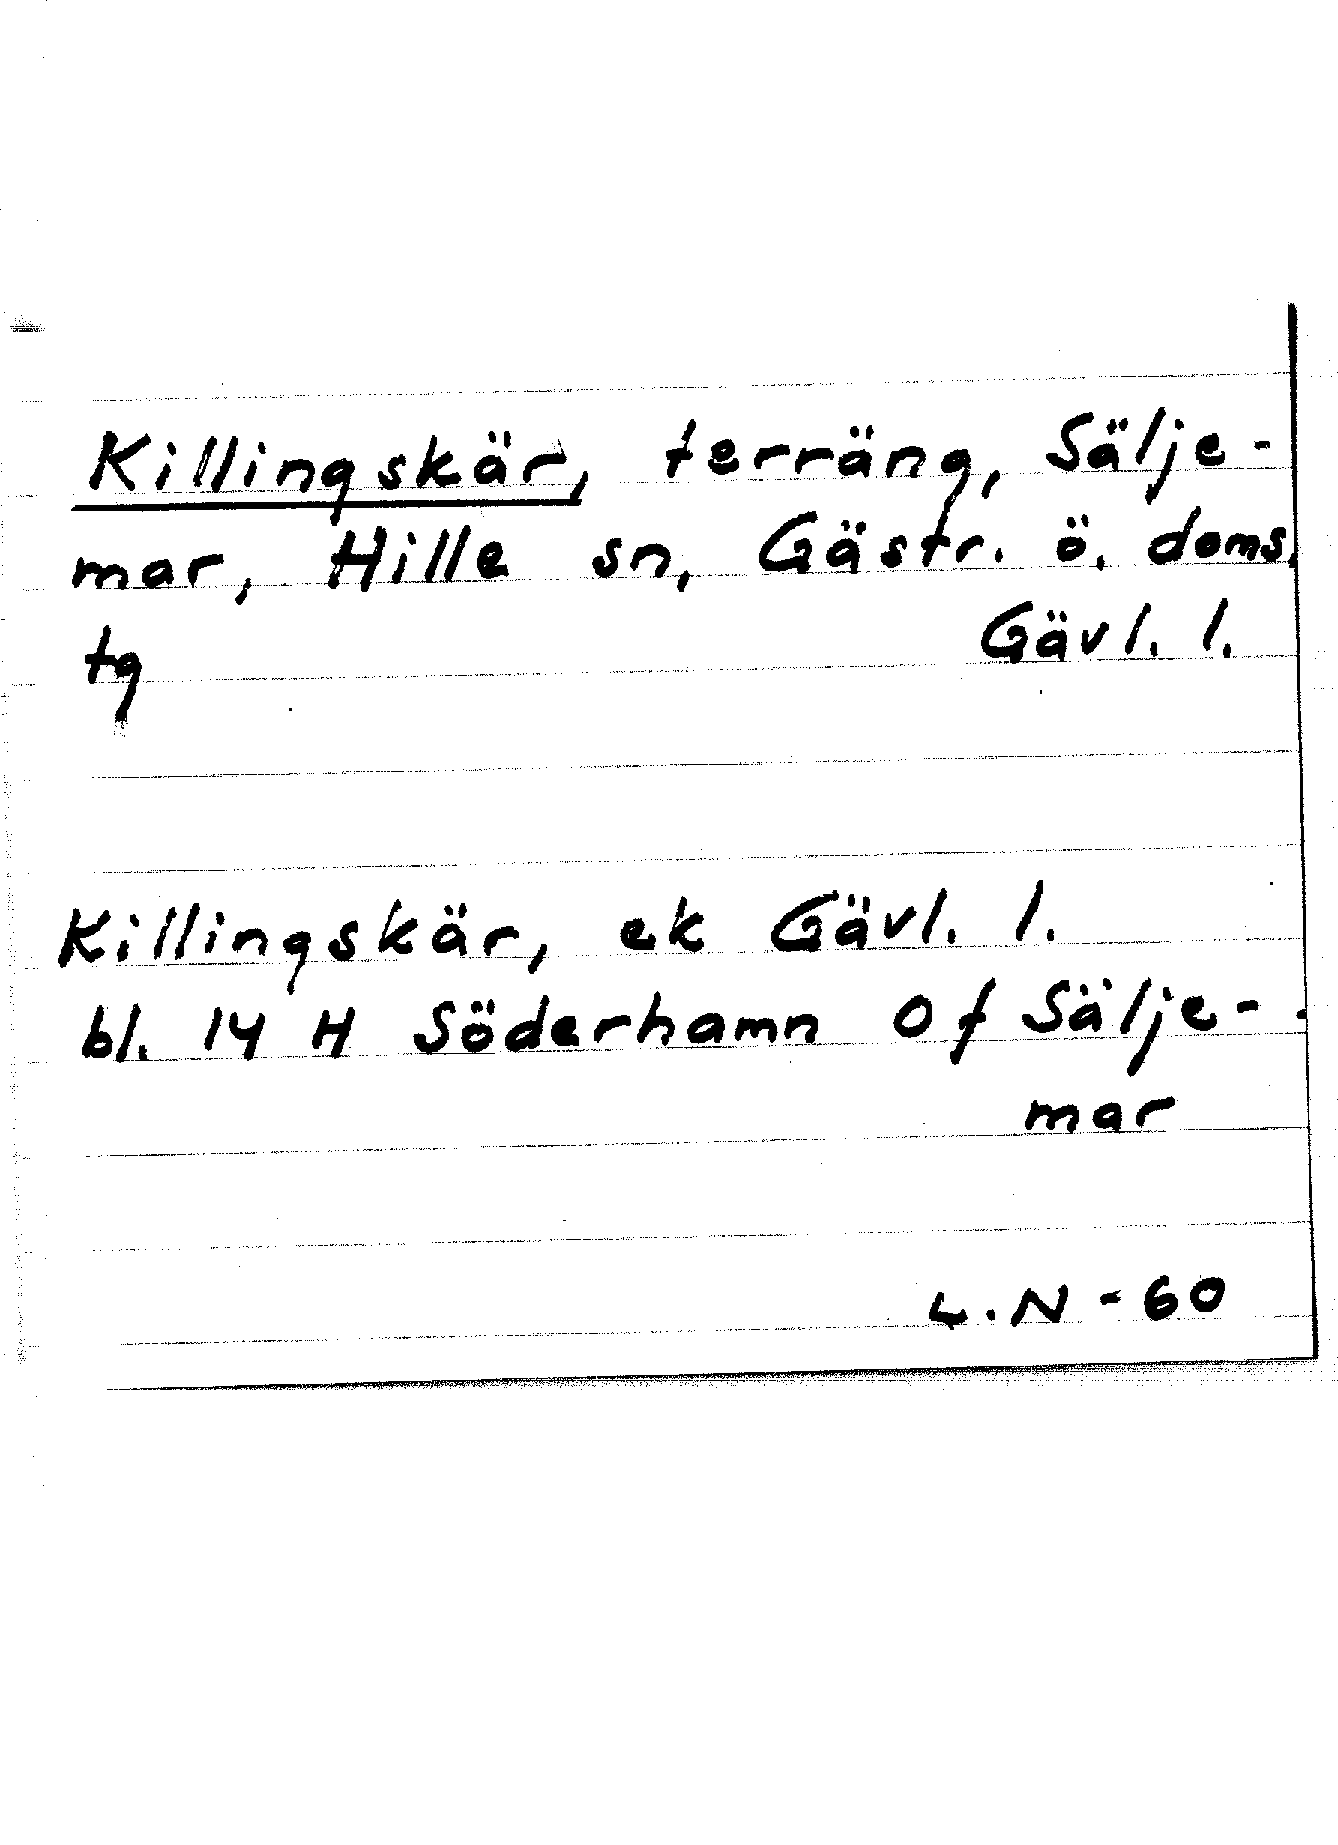 Killingskär, terräng, Sälje-
mar, Hille sn, Gästr. ö. doms.
tg Gävl. l.
Killingskär, ek Gävl. l.
bl. 14 H Söderhamn Of Sälje-
mar
L.N-60